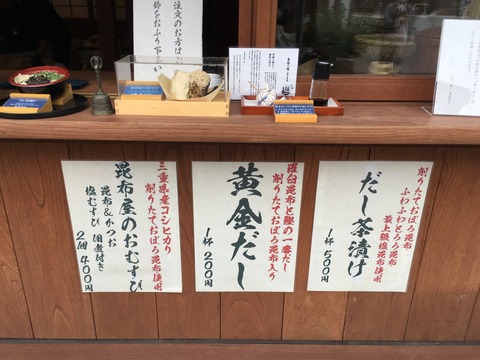 注文のお方は
鈴をおふり下さい
三重県産コシヒカリ
削りたておぼろ昆布使用
昆布屋のおむすび
昆布&かつお
塩むすび 佃煮付き
2個 400円
羅臼昆布と鰹の一番だし
削りたておぼろ昆布入り
黄金だし
1杯 200円
削りたておぼろ昆布
ふわふわとろろ昆布
最上級塩昆布使用
だし茶漬け
1杯 500円